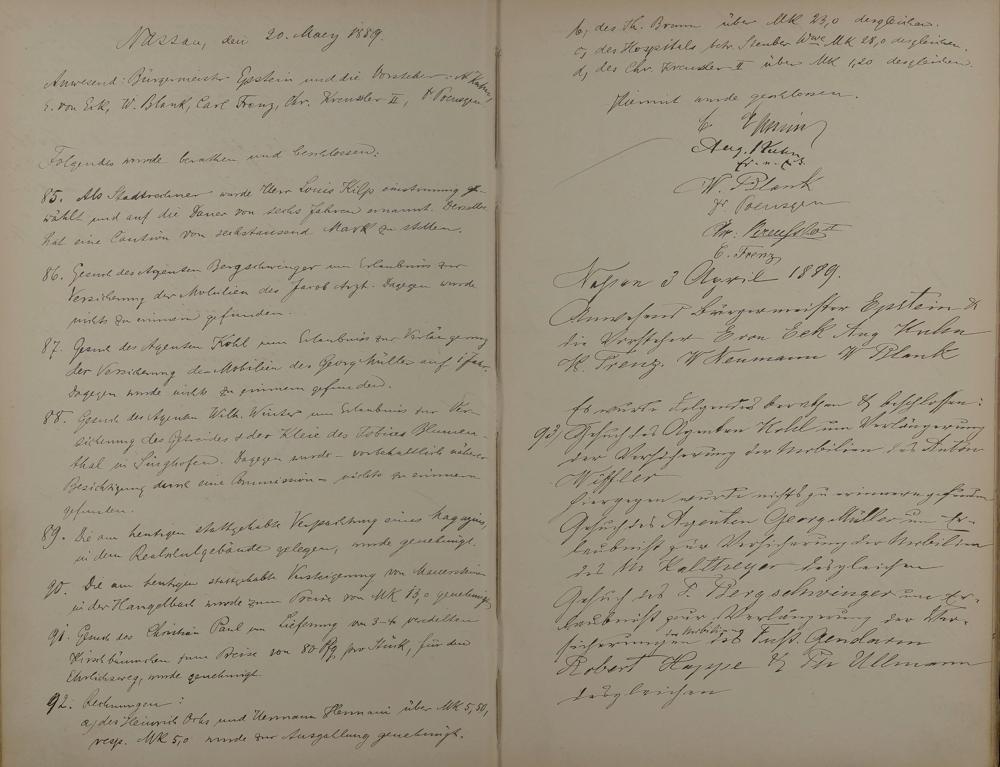 Nassau, den 20. Maerz 1889.
Anwesend: Bürgermeister Epstein und die Vorsteher: A. Kuhn,
E. von Eck, W. Blank, Carl Frenz, Chr. Kreusler II, Dr Poensgen
Folgendes wurde berathen und beschlossen:
85. Als Stadtrechner wurde Herr Louis Hilp einstimmig ge-
wählt und auf die Dauer von sechs Jahren ernannt. Derselbe
hat eine Caution von sechstausend Mark zu stellen.
86. Gesuch des Agenten Bergschwinger um Erlaubnis zur
Versicherung der Mobilien des Jacob Arzt. Dagegen wurde
nichts zu erinnern gefunden.
87. Gesuch des Agenten Kohl um Erlaubnis zur Verlängerung
der Versicherung der Mobilien des Georg Müller auf 1 Jahr.
Dagegen wurde nichts zu erinnern gefunden.
88. Gesuch des Agenten Wilh. Winter um Erlaubnis zur Ver-
sicherung des Getreides & der Kleie des Tobias Blumen-
thal in Singhofen. Dagegen wurde – vorbehaltlich näherer
Besichtigung durch eine Commission – nichts zu erinnern
gefunden.
89. Die am heutigen stattgehabte Verpachtung eines Magazins,
in dem Realschulgebäude gelegen, wurde genehmigt.
90. Die am heutigen stattgehabte Versteigerung von Mauersteinen
in der Hangelbach wurde zum Preise von MK 13,0 genehmigt
91. Gesuch des Christian Paul um Lieferung von 3-4 veredelten
Kirschbäumchen zum Preise von 80 Pfg pro Stück, für den
Ehrlichsweg, wurde genehmigt
92. Rechnungen:
a, des Heinrich Ochs und Hermann Hermani über MK 5,50,
resp. MK 5,0 wurde zur Auszahlung genehmigt.
b, des Th. Bruun über MK 23,0 desgleichen.
c, des Hospitals betr. Steuber Wwe MK 28,0 desgleichen.
d, des Chr. Kreusler II über MK 1,20 desgleichen.
Hiermit wurde geschlossen.
E. Epstein
Aug. Kuhn
W. Blank
Dr Poensgen
Chr. Kreusler II
C. Frenz
Nassau 3 April 1889.
Anwesend Bürgermeister Epstein &
die Vorsteher E von Eck Aug Kuhn
K. Frenz. W Neumann W Blank
Es wurde Folgendes berathen & beschlossen:
93, Gesuch des Agenten Kohl um Verlängerung
der Versicherung der Mobilien des Anton
Wiffler
hiergegen wurde nichts zu erinnern gefunden
Gesuch des Agenten Georg Müller um Er-
laubniß zur Versicherung der Mobilien
des M Kaltheyer desgleichen
Gesuch des F. Bergschwinger um Er-
laubniß zur Verlängerung der Ver-
sicherungen der Mobilien des Fußt. Gendarm
Robert Happe & Ph Ullmann
desgleichen